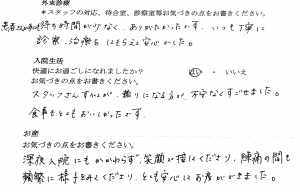 外来診療
●スタッフの対応、待合室、診察室等お気づきの点をお書きください。
患者さんが 待ち時間が少なく、ありがたかったです。いつも丁寧に
診察・治療をしてもらえて安心でした。
入院生活
快適にお過ごしになれましたか? はい・いいえ
お気づきの点をお書きください。
スタッフさんすべてが、頼りになる方で、不安なくすごせました。
食事もとてもおいしかったです。
お産
お気づきの点をお書きください。
深夜入院にもかかわらず、笑顔で接してくださり、陣痛の間も
頻繁に様子をみてくださり、とても安心してお産ができました。